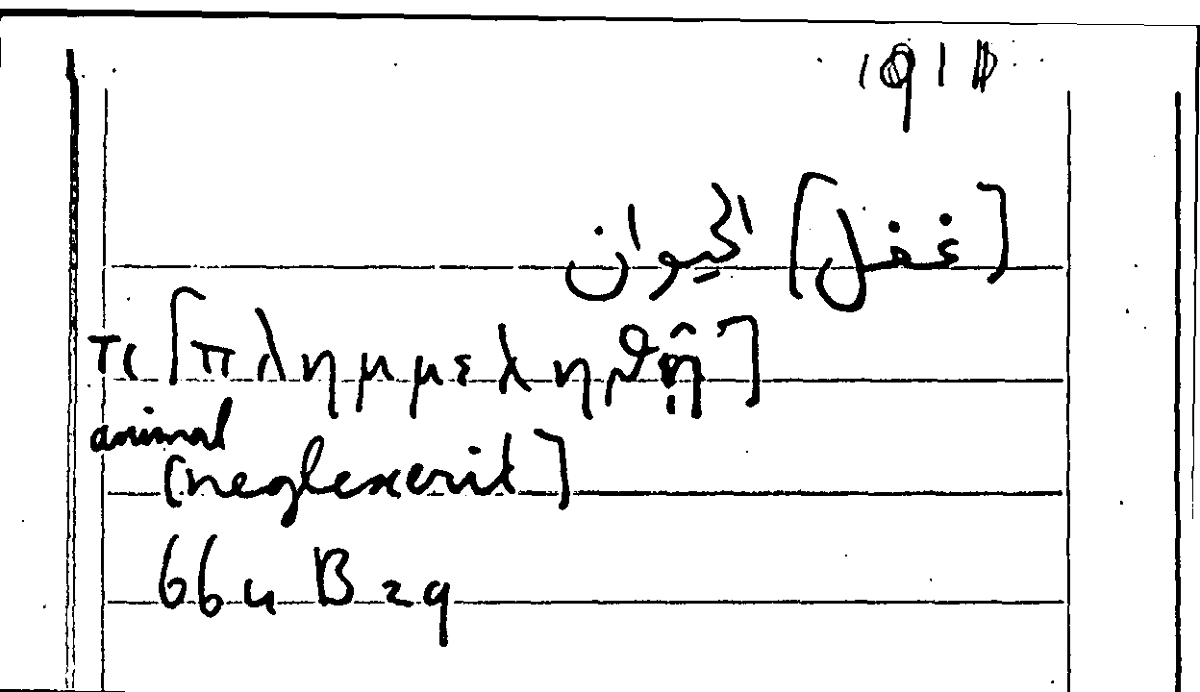 [غفل] الحيوان
τι [πλημμεληθῇ]
animal
[neglexerit]
66u B 29